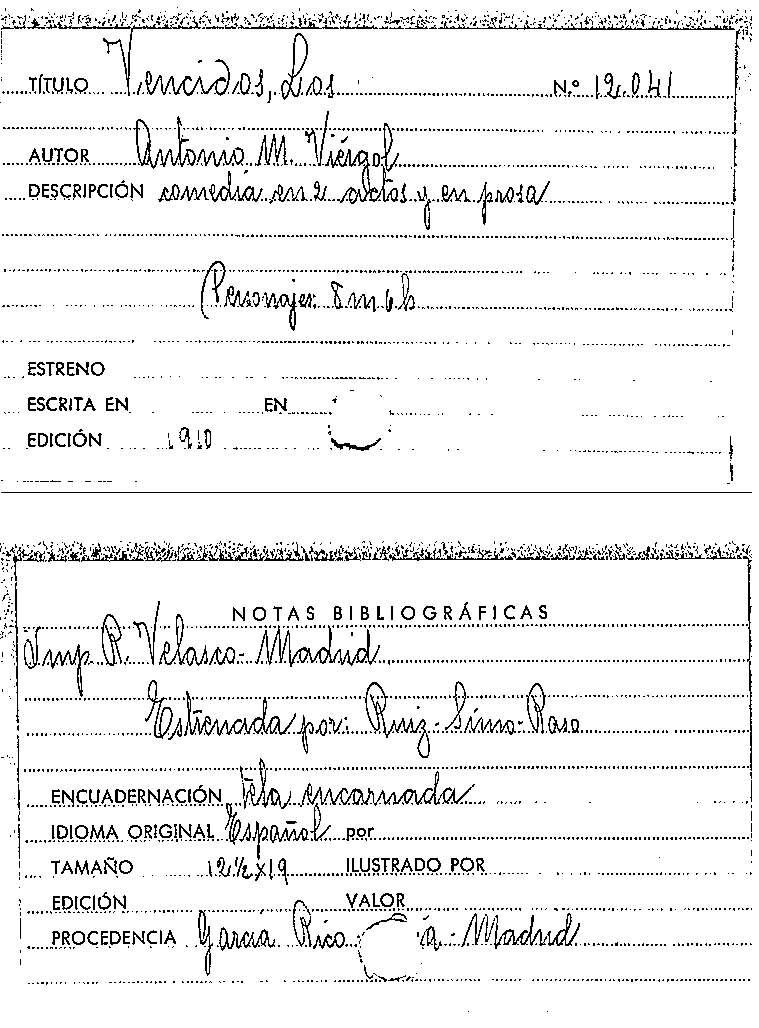 TÍTULO Vencidos, Los N.º 12.041
AUTOR Antonio M. Viérgol
DESCRIPCIÓN comedia en 2 actos y en prosa
Personajes: 8 m 6 h
ESTRENO
ESCRITA EN EN
EDICIÓN 1910
NOTAS BIBLIOGRÁFICAS
Imp. R. Velasco - Madrid
Estrenada por: Ruiz - Simo - Raso
ENCUADERNACIÓN tela encarnada
IDIOMA ORIGINAL Español por
TAMAÑO 12½ x 19 ILUSTRADO POR
EDICIÓN VALOR
PROCEDENCIA García Rico - Madrid